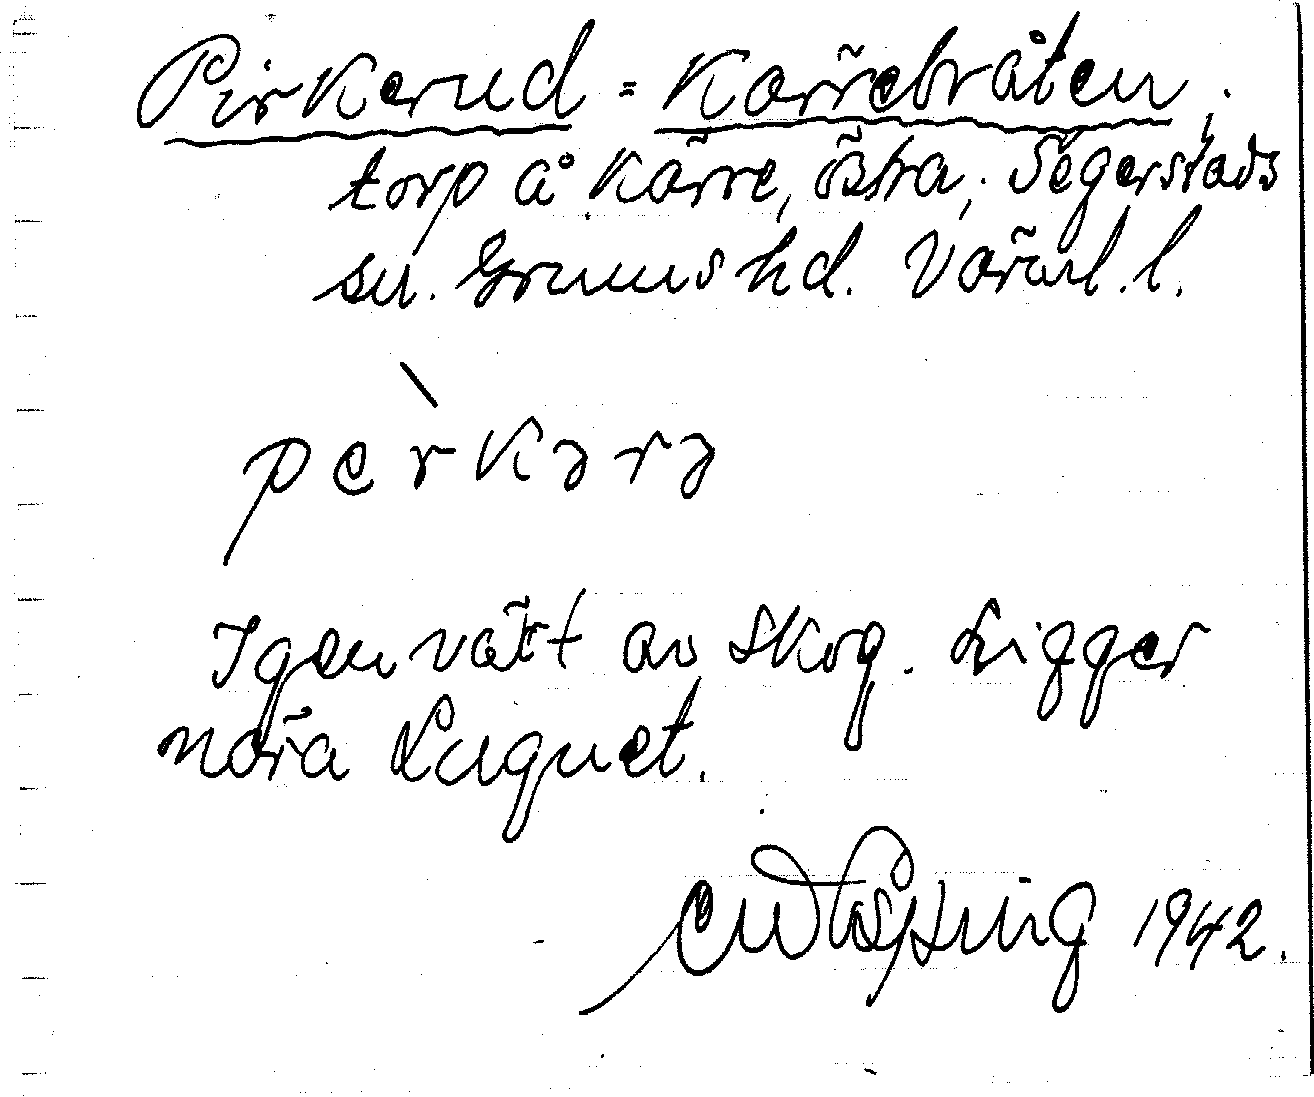 Pirkerud = Kärrebråten.
torp å Kärre, östra, Segerstads
sn. Grums hd. Värml. l.
pèrkərə
Igenväxt av skog. Ligger
nära Lugnet.
1942.